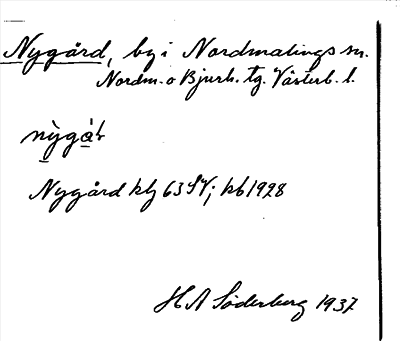 Nygård, by i Nordmalings sn.
Nordm. o Bjurh. tg. Västerb. l.
nỳgá̀ɫ
Nygård klj 63 SV; kb 1928
H A Söderberg 1937